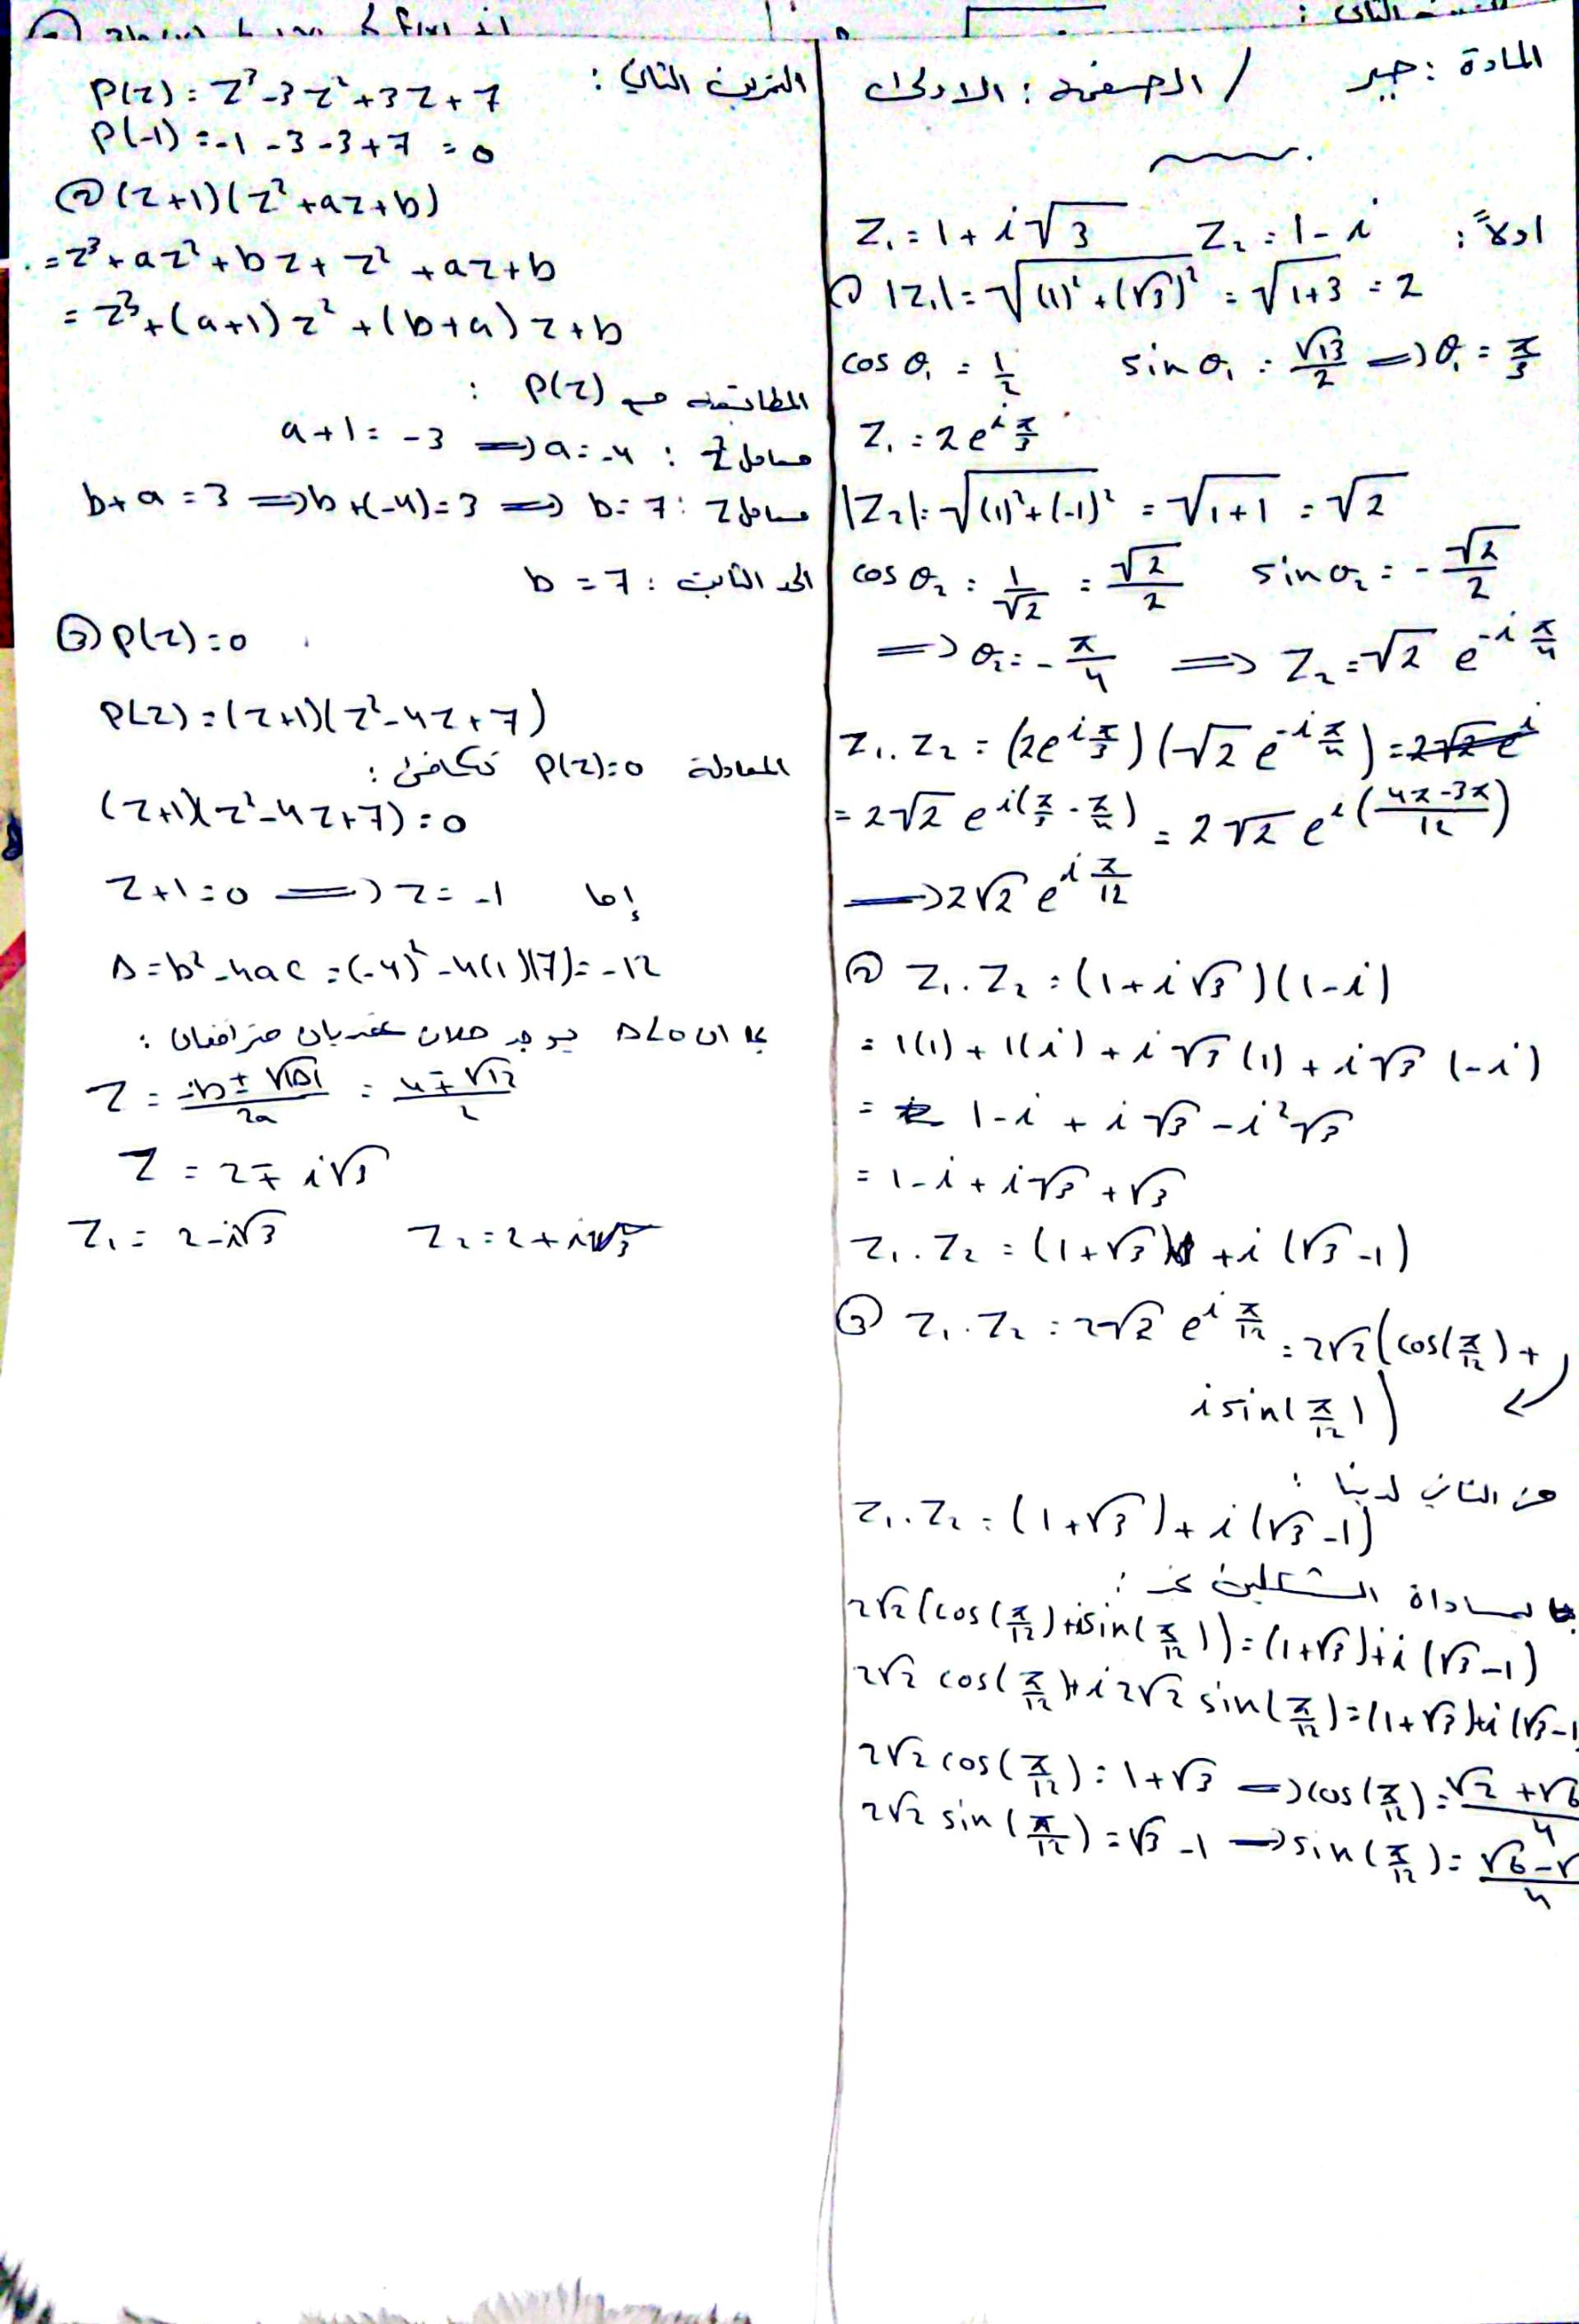 المادة : جبر / الصفحة : الاولى
اولاً :
Z₁ = 1 + i√3 Z₂ = 1 - i
① |Z₁| = √((1)² + (√3)²) = √(1+3) = 2
cos θ₁ = 1/2 sin θ₁ = √3/2 ⟹ θ₁ = π/3
Z₁ = 2e^(i π/3)
|Z₂| = √((1)² + (-1)²) = √(1+1) = √2
cos θ₂ = 1/√2 = √2/2 sin θ₂ = -√2/2
⟹ θ₂ = -π/4 ⟹ Z₂ = √2 e^(-i π/4)
Z₁ . Z₂ = (2e^(i π/3))(√2 e^(-i π/4)) =
= 2√2 e^(i(π/3 - π/4)) = 2√2 e^(i((4π-3π)/12))
⟹ 2√2 e^(i π/12)
② Z₁ . Z₂ = (1 + i√3)(1 - i)
= 1(1) + 1(i) + i√3 (1) + i√3 (-i)
= 1 - i + i√3 - i²√3
= 1 - i + i√3 + √3
Z₁ . Z₂ = (1+√3) + i(√3 - 1)
③ Z₁ . Z₂ = 2√2 e^(i π/12) = 2√2 (cos(π/12) +
i sin(π/12))
من الثاني لدينا :
Z₁ . Z₂ = (1+√3) + i(√3 - 1)
بالمساواة الشكلين نجد :
2√2 (cos(π/12) + i sin(π/12)) = (1+√3) + i(√3 - 1)
2√2 cos(π/12) + i 2√2 sin(π/12) = (1+√3) + i(√3 - 1
2√2 cos(π/12) = 1+√3 ⟹ cos(π/12) = (√2 + √6)/4
2√2 sin(π/12) = √3 - 1 ⟹ sin(π/12) = (√6 - √)/4
التمرين الثاني :
P(z) = z³ - 3z² + 3z + 7
P(-1) = -1 - 3 - 3 + 7 = 0
② (z+1)(z² + az + b)
= z³ + az² + bz + z² + az + b
= z³ + (a+1)z² + (b+a)z + b
المطابقة مع P(z) :
معامل z² : a + 1 = -3 ⟹ a = -4
معامل z : b + a = 3 ⟹ b + (-4) = 3 ⟹ b = 7
الحد الثابت : b = 7
③ P(z) = 0
P(z) = (z+1)(z² - 4z + 7)
المعادلة P(z) = 0 تكافئ :
(z+1)(z² - 4z + 7) = 0
إما z + 1 = 0 ⟹ z = -1
Δ = b² - 4ac = (-4)² - 4(1)(7) = -12
بما ان Δ<0 يوجد حلان عقديان مترافقان :
Z = (-b ± √|Δ|)/2a = (4 ∓ √12)/2
Z = 2 ∓ i√3
Z₁ = 2 - i√3 Z₂ = 2 + i√3